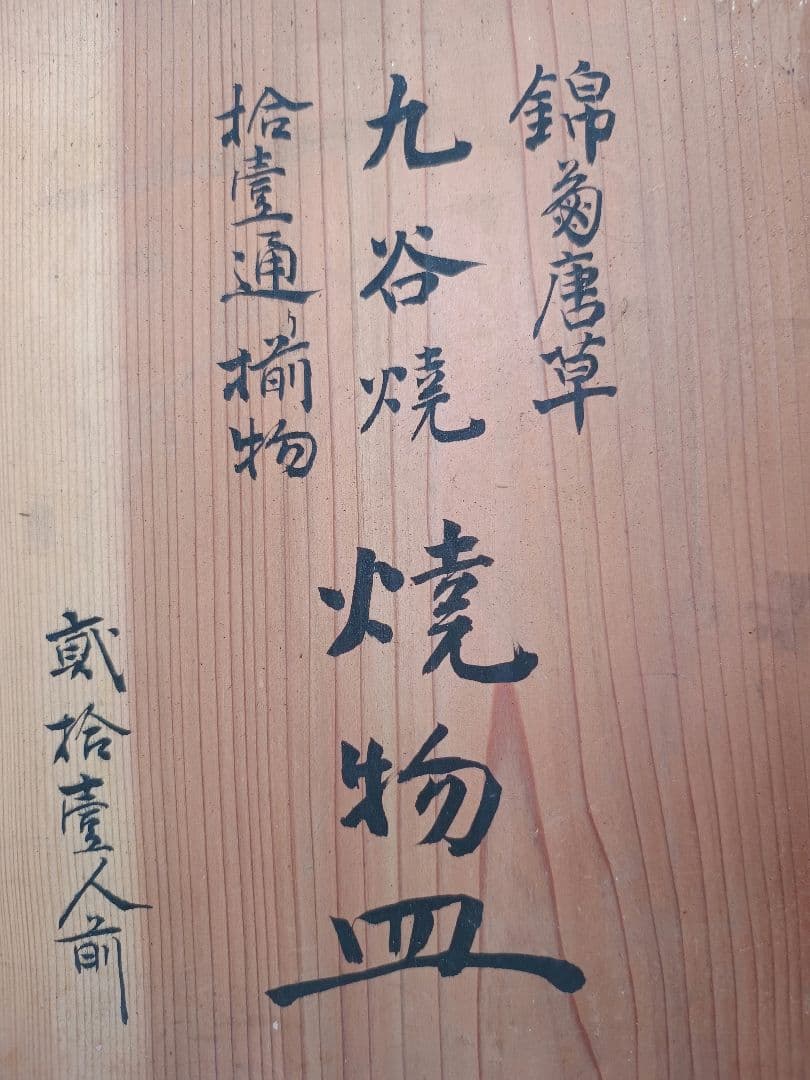 錦菊唐草
九谷燒
燒物皿
拾壹通り揃物
貮拾壹人前